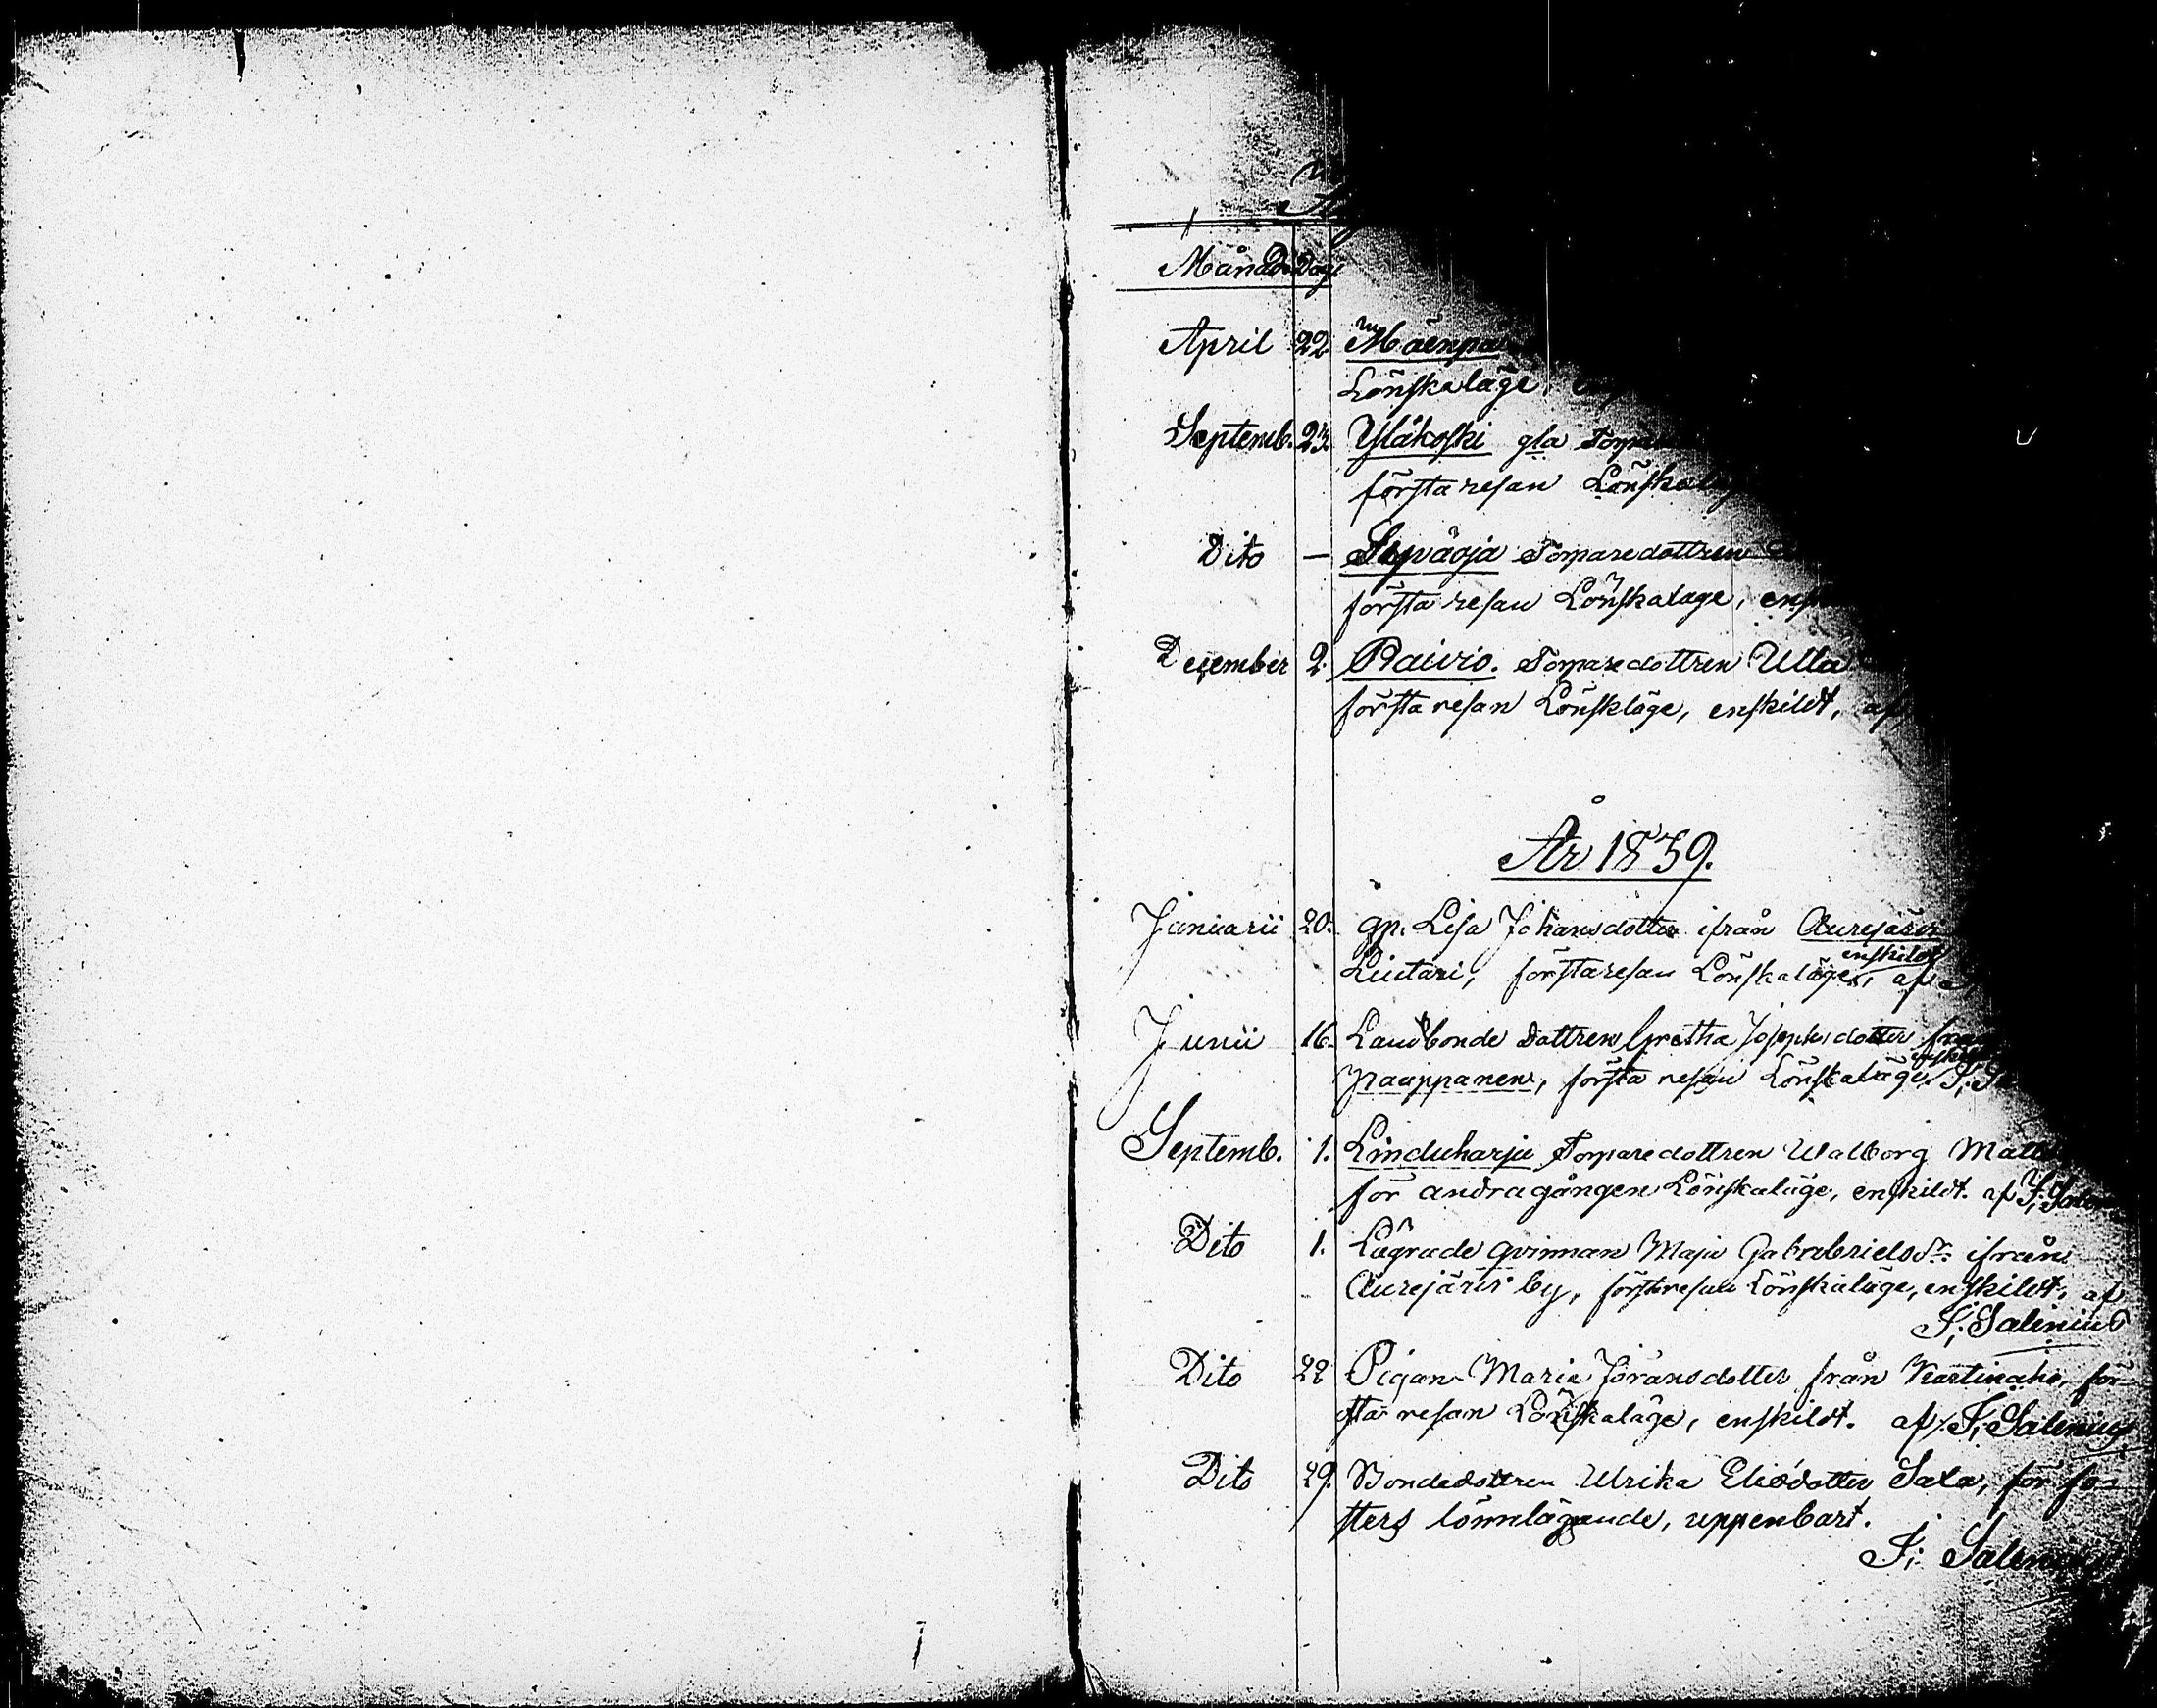 Månad Dag
April 22 Mäenpä
Lönskaläge,
Septemb. 23. Ylikoski gla Torpare
första resan Lönskaläg
Dito — Sepäoja Torparedottren
första resan Lönskaläge, ensk
December 2. Raivio. Torparedottren Ulla
första resan Lönskläge, enskildt, af
År 1839.
Januarii 20. gp. Lisa Johansdotter ifrån Aurejärvi
enskildt
Liutari, första resan Lönskaläge, af
Junii 16. Landbonde Dottren Gretha Josephsdotter från
Paappanen, första resan Lönskaläge,
Septemb. 1. Linduharju Torparedottren Walborg Matts
för andra gången Lönskaläge, enskildt. af F; Salen
Dito 1. Lägrade qvinnan Maja Gabrabrielsdr ifrån
Aurejärvi by, första resan Lönskaläge, enskildt, af
F; Salenius
Dito 28 Pigan Maria Jöransdotter från Kartinaho, för-
sta resan Lönskaläge, enskildt. af F; Salenius
Dito 29. Bondedottren Ulrika Eliedotter Sala, för fo-
sters lönnläggande, uppenbart.
F; Salenius